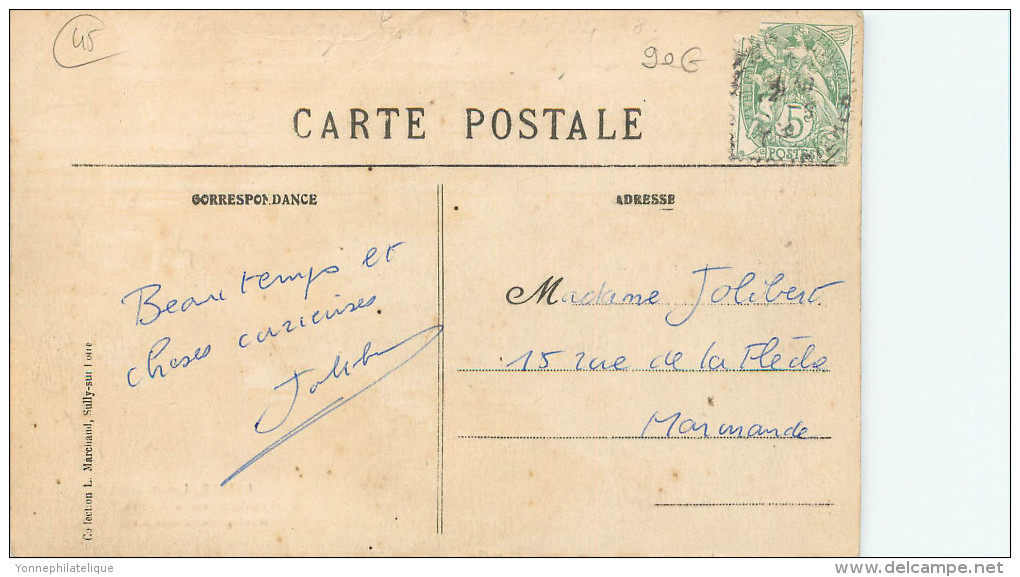 45
90€
CARTE POSTALE
5
POSTES
CORRESPONDANCE
ADRESSE
Beau temps et
choses curieuses
Jolibert
Madame Jolibert
15 rue de la
Marmande
Collection L. Marchand, Sully-sur Loire
Yonnephilatelique
delcampe.net